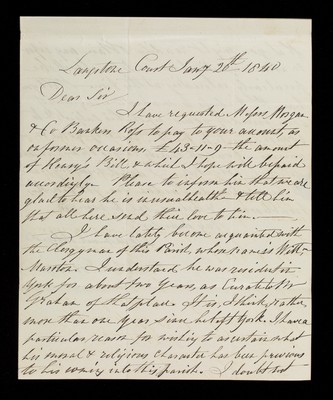 Langstone Court Jany 20th 1840
Dear Sir
I have requested Messrs Morgan
& Co Bankers Ross to pay to your account, as
on former occasions, £43-11-9 the amount
of Henry's Bill & which I hope will be paid
accordingly. Please to inform him that we are
glad to hear he is in health & tell him
that all here send their love to him.
I have lately become acquainted with
the Clergyman of this Parish, whose name is Willm
I understand he was resident in
York for about two years, as Curate to Mr
Graham of that place. It is, I think, rather
more than one year, since he left York. I have a
particular reason for wishing to ascertain what
his moral & religious Character has been previous
to his coming into this parish. I doubt not